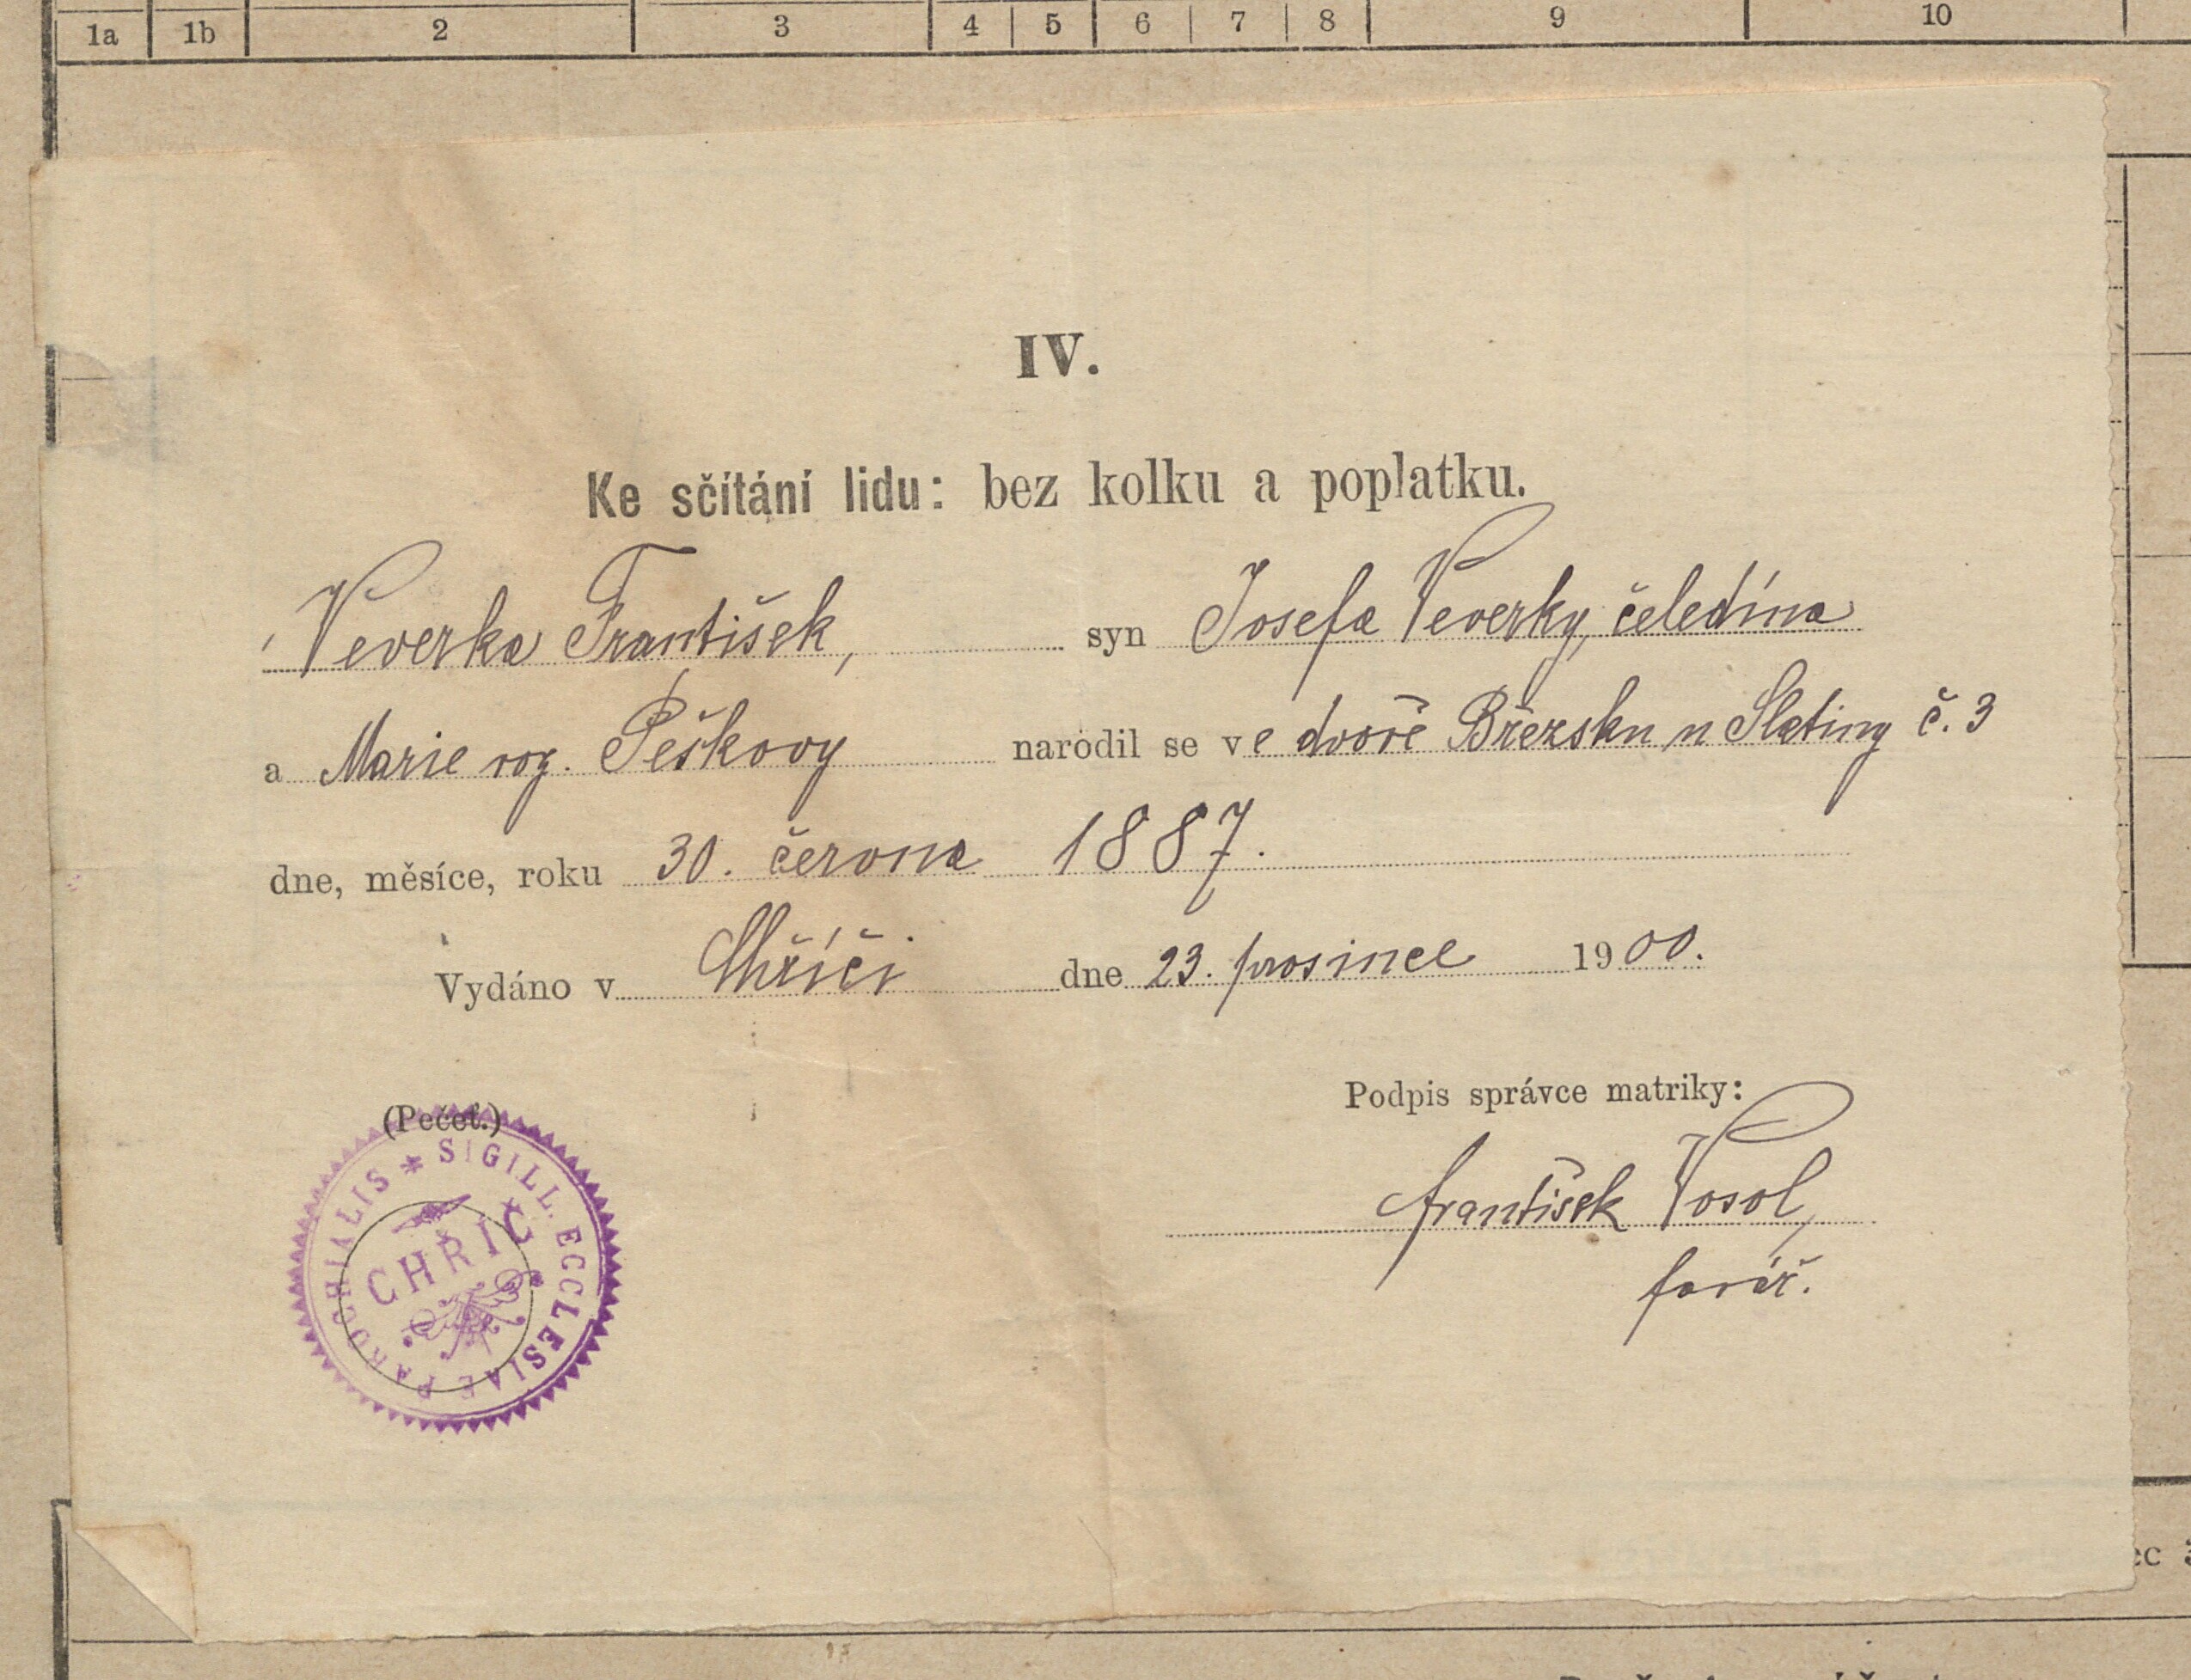 1a 1b 2 3 4 5 6 7 8 9 10
IV.
Ke sčítání lidu: bez kolku a poplatku.
Veverka František, syn Josefa Veverky, čeledína
a Marie roz. Peškovy narodil se ve dvoře Březsku u Slatiny č. 3
dne, měsíce, roku 30. června 1887.
Vydáno v Chříči dne 23. prosince 1900.
Podpis správce matriky:
(Pečeť.)
* SIGILL. ECCLESIAE PAROCHIALIS
CHŘÍČ
František Vosol,
farář.